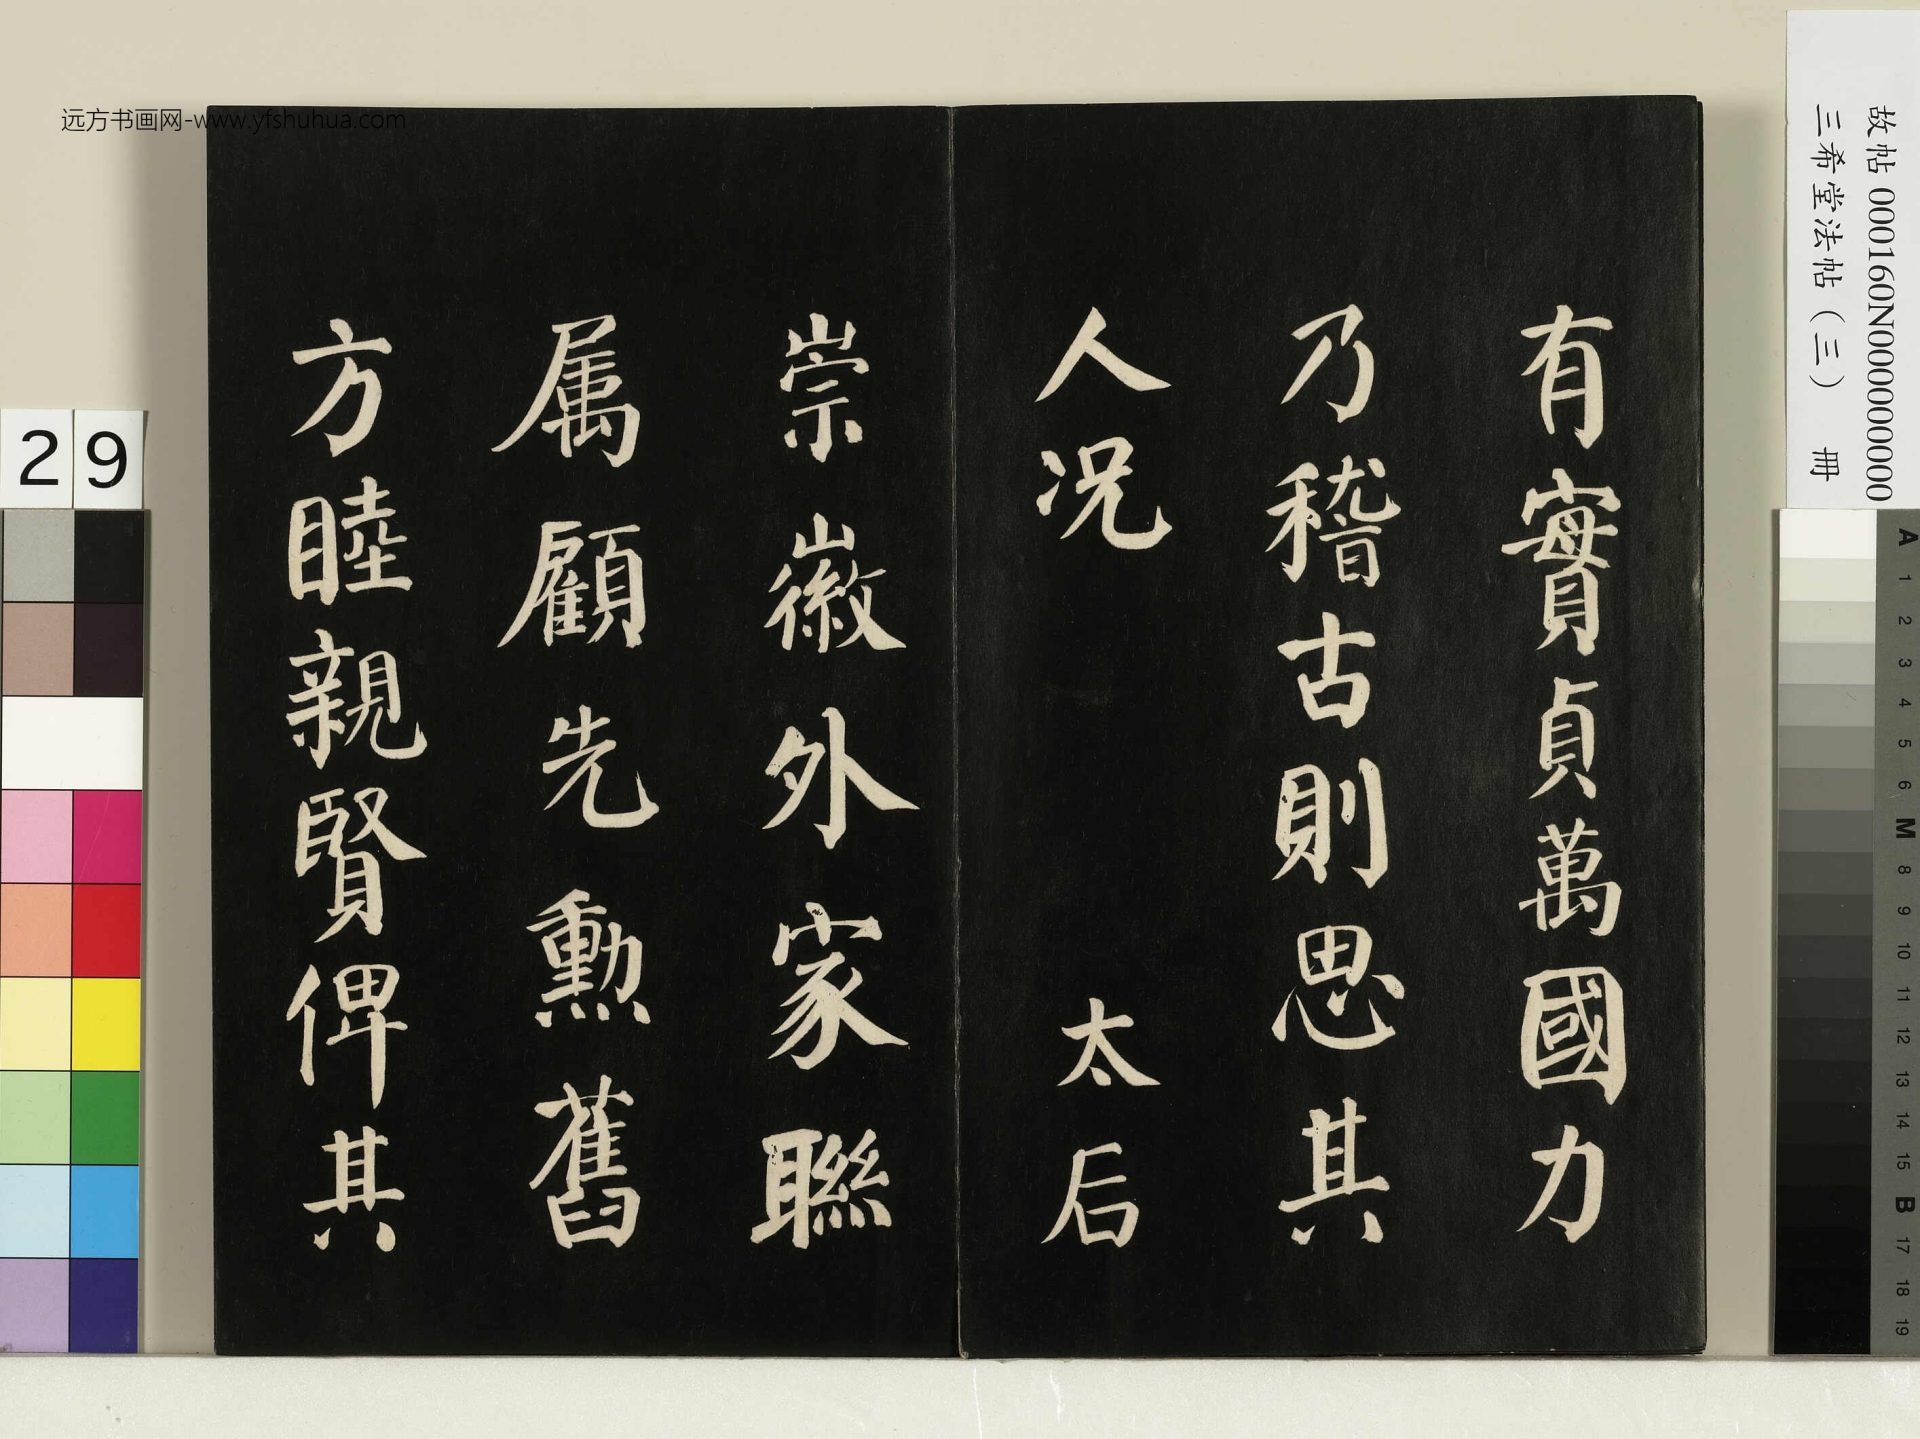 有實貞萬國力
乃稽古則思其
人況 太后
崇徽外家聯
属顧先勲舊
方睦親賢俾其
远方书画网-www.yfshuhua.com
故帖 000160N000000000
三希堂法帖（三） 冊
29
A
1
2
3
4
5
6
M
8
9
10
11
12
13
14
15
B
17
18
19